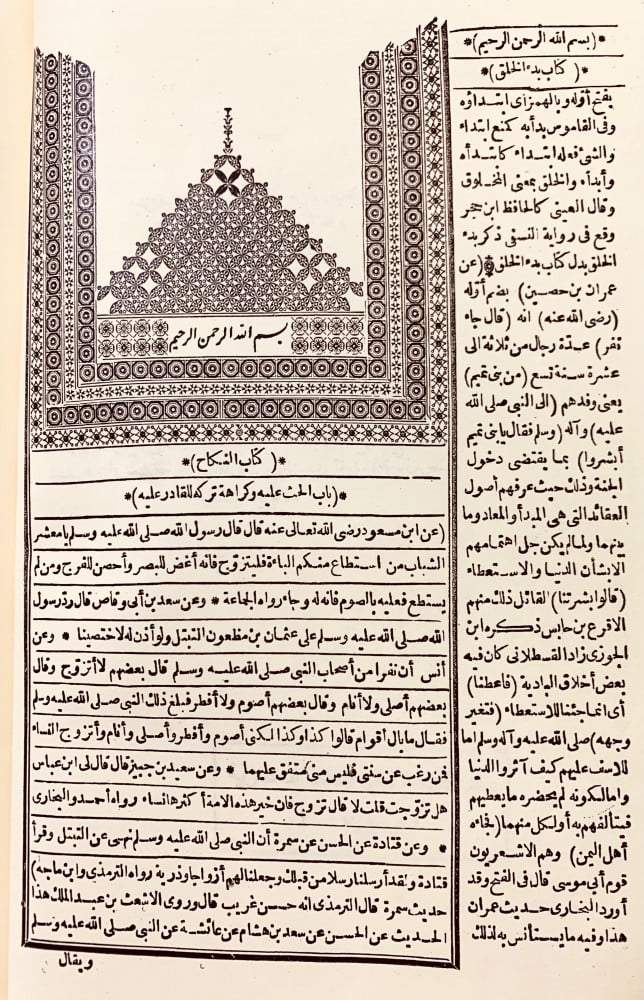 بسم الله الرحمن الرحيم
*(كتاب النكاح)*
*(باب الحث عليه وكراهة تركه للقادر عليه)*
(عن ابن مسعود رضى الله تعالى عنه قال قال رسول الله صلى الله عليه وسلم يا معشر
الشباب من استطاع منكم الباءة فليتزوج فانه أغض للبصر وأحصن للفرج ومن لم
يستطع فعليه بالصوم فانه له وجاء رواه الجماعة * وعن سعد بن أبى وقاص قال رد رسول
الله صلى الله عليه وسلم على عثمان بن مظعون التبتل ولو أذن له لاختصينا * وعن
أنس أن نفرا من أصحاب النبى صلى الله عليه وسلم قال بعضهم لا أتزوج وقال
بعضهم أصلى ولا أنام وقال بعضهم أصوم ولا أفطر فبلغ ذلك النبى صلى الله عليه وسلم
فقال ما بال أقوام قالوا كذا وكذا لكنى أصوم وأفطر وأصلى وأنام وأتزوج النساء
فمن رغب عن سنتى فليس منى متفق عليهما * وعن سعيد بن جبير قال قال لى ابن عباس
هل تزوجت قلت لا قال تزوج فان خير هذه الامة أكثرها نساء رواه أحمد والبخارى
* وعن قتادة عن الحسن عن سمرة أن النبى صلى الله عليه وسلم نهى عن التبتل وقرأ
قتادة ولقد أرسلنا رسلا من قبلك وجعلنا لهم أزواجا وذرية رواه الترمذى وابن ماجه)
حديث سمرة قال الترمذى انه حسن غريب قال وروى الاشعث بن عبد الملك هذا
الحديث عن الحسن عن سعد بن هشام عن عائشة عن النبى صلى الله عليه وسلم
ويقال
*(بسم الله الرحمن الرحيم)*
*(كتاب بدء الخلق)*
يفتح أوله وبالهمز أى ابتداؤه
وفى القاموس بدأ به كمنع ابتداء
والشئ فعله ابتداء كابتدأه
وأبدأه والخلق بمعنى المخلوق
وقال العينى كالحافظ ابن حجر
وقع فى رواية النسفى ذكر بدء
الخلق بدل كتاب بدء الخلق (عن
عمران بن حصين) بضم أوله
(رضى الله عنه) انه (قال جاء
نفر) عدة رجال من ثلاثة الى
عشرة سنة تسع (من بنى تميم)
يعنى وفدهم (الى النبى صلى الله
عليه) وآله (وسلم فقال يا بنى تميم
أبشروا) بما يقتضى دخول
الجنة وذلك حيث عرفهم أصول
العقائد التى هى المبدأ والمعاد وما
بينهما ولما لم يكن جل اهتمامهم
الا بشأن الدنيا والاستعطاء
(قالوا بشرتنا) القائل ذلك منهم
الاقرع بن حابس ذكره ابن
الجوزى زاد القسطلانى كان فيه
بعض أخلاق البادية (فاعطنا)
أى انما جئنا للاستعطاء (فتغير
وجهه) صلى الله عليه وآله وسلم اما
للاسف عليهم كيف آثروا الدنيا
واما لكونه لم يحضره ما يعطيهم
فيتألفهم به أو لكل منهما (فجاءه
أهل اليمن) وهم الاشعريون
قوم أبى موسى قال فى الفتح وقد
أورد البخارى حديث عمران
هذا وفيه ما يستأنس به لذلك